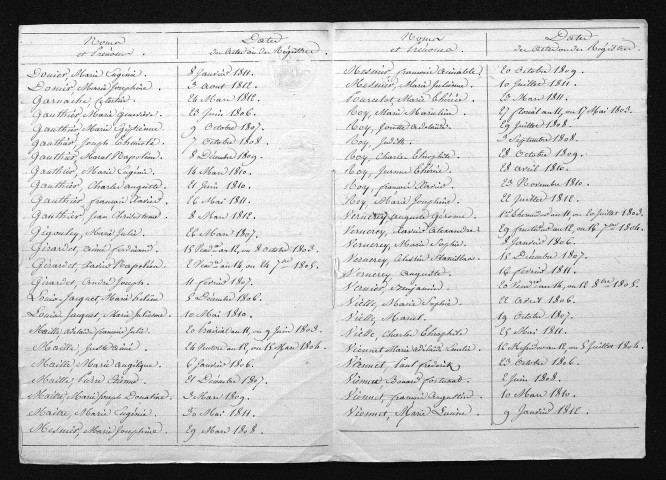 Noms
et Prénoms.
Dates
des Actes ou des Régistres.
Donier, Marie Eugénie. 8 Janvier 1811.
Donier, Marie Joséphine. 3 Aout 1812.
Garnache, 24 Mars 1812.
Gauthier, Marie 23 Juin 1806.
Gauthier, Marie 9 Octobre 1807.
Gauthier, Joseph 7 Octobre 1808.
Gauthier, Marcel Napoléon. 8 Décembre 1809.
Gauthier, Marie Eugénie. 14 Mars 1810.
Gauthier, Charle auguste. 21 Juin 1810.
Gauthier, françois Xavier. 26 Mai 1811.
Gauthier, Jean 8 Mars 1812.
Gigouley, Marie Julie. 22 Mars 1807.
Girardet, aimé ferdinand. 15 Vendre an 12, ou 8 Octobre 1803.
Girardet, Xavier Napoléon. 2 Vendre an 14, ou 24 7bre 1805.
Girardet, André Joseph. 11 février 1807.
Louis-Jaquet, Marie 5 Décembre 1806.
Louis Jaquet, Marie Julienne. 10 Mai 1810.
Maille adelaïde françoise Julie. 20 Prairial an 11, ou 9 Juin 1803.
Maille, Just aimé. 24 Ventose an 12, ou 15 Mars 1804.
Maille Marie Angélique. 6 Janvier 1806.
Maille, Pierre Etienne. 21 Décembre 1807.
Maille, Marie Joseph Donatine. 3 Mars 1809.
Maille, Marie Eugénie. 30 Mai 1811.
Mesnier, Marie Joséphine. 29 Mars 1808.
Noms
et Prénoms.
Dates
des Actes ou des Régistres.
Mesnier, françois aimable. 20 Octobre 1809.
Mesnier, Marie Julienne. 10 Juillet 1811.
Pourcelot, Marie Thérèse. 23 Mars 1811.
Roy, Marie Marceline. 27 floréal an 11, ou 17 Mai 1803.
Roy, adelaïde. 29 Juillet 1808.
Roy, Judith. 3 Septembre 1808.
Roy, Charle Théophile. 28 Octobre 1809.
Roy, Jeanne Thérèse. 28 avril 1810.
Roy, françois Xavier. 23 Novembre 1810.
Roy, Marie Joséphine. 22 Juillet 1812.
Vernerey, auguste Gérome. 1er thermidor an 11, ou 20 Juillet 1803.
Vernerey, Xavier Alexandre. 29 fructidor an 12, ou 16 7bre 1804.
Vernerey, Marie Sophie. 8 Janvier 1806.
Vernerey, Stanislas. 15 Décembre 1807.
Vernerey auguste. 16 février 1811.
Vernier, Benjamin. 20 Vendre an 14, ou 12 8bre 1805.
Vieille, Marie Sophie. 22 Aout 1806.
Vieille, Marcel. 19 Octobre 1807.
Vieille, Charle Théophile. 25 Mai 1811.
Viennet Marie adelaïde 16 Messidor an 12, ou 5 Juillet 1804.
Viennet, Paul frédérick 23 Octobre 1806.
Viennet Bonard fortunat. 2 Juin 1808.
Viennet, françois Augustin. 10 Mars 1810.
Viennet, Marie Lucine. 9 Janvier 1812.